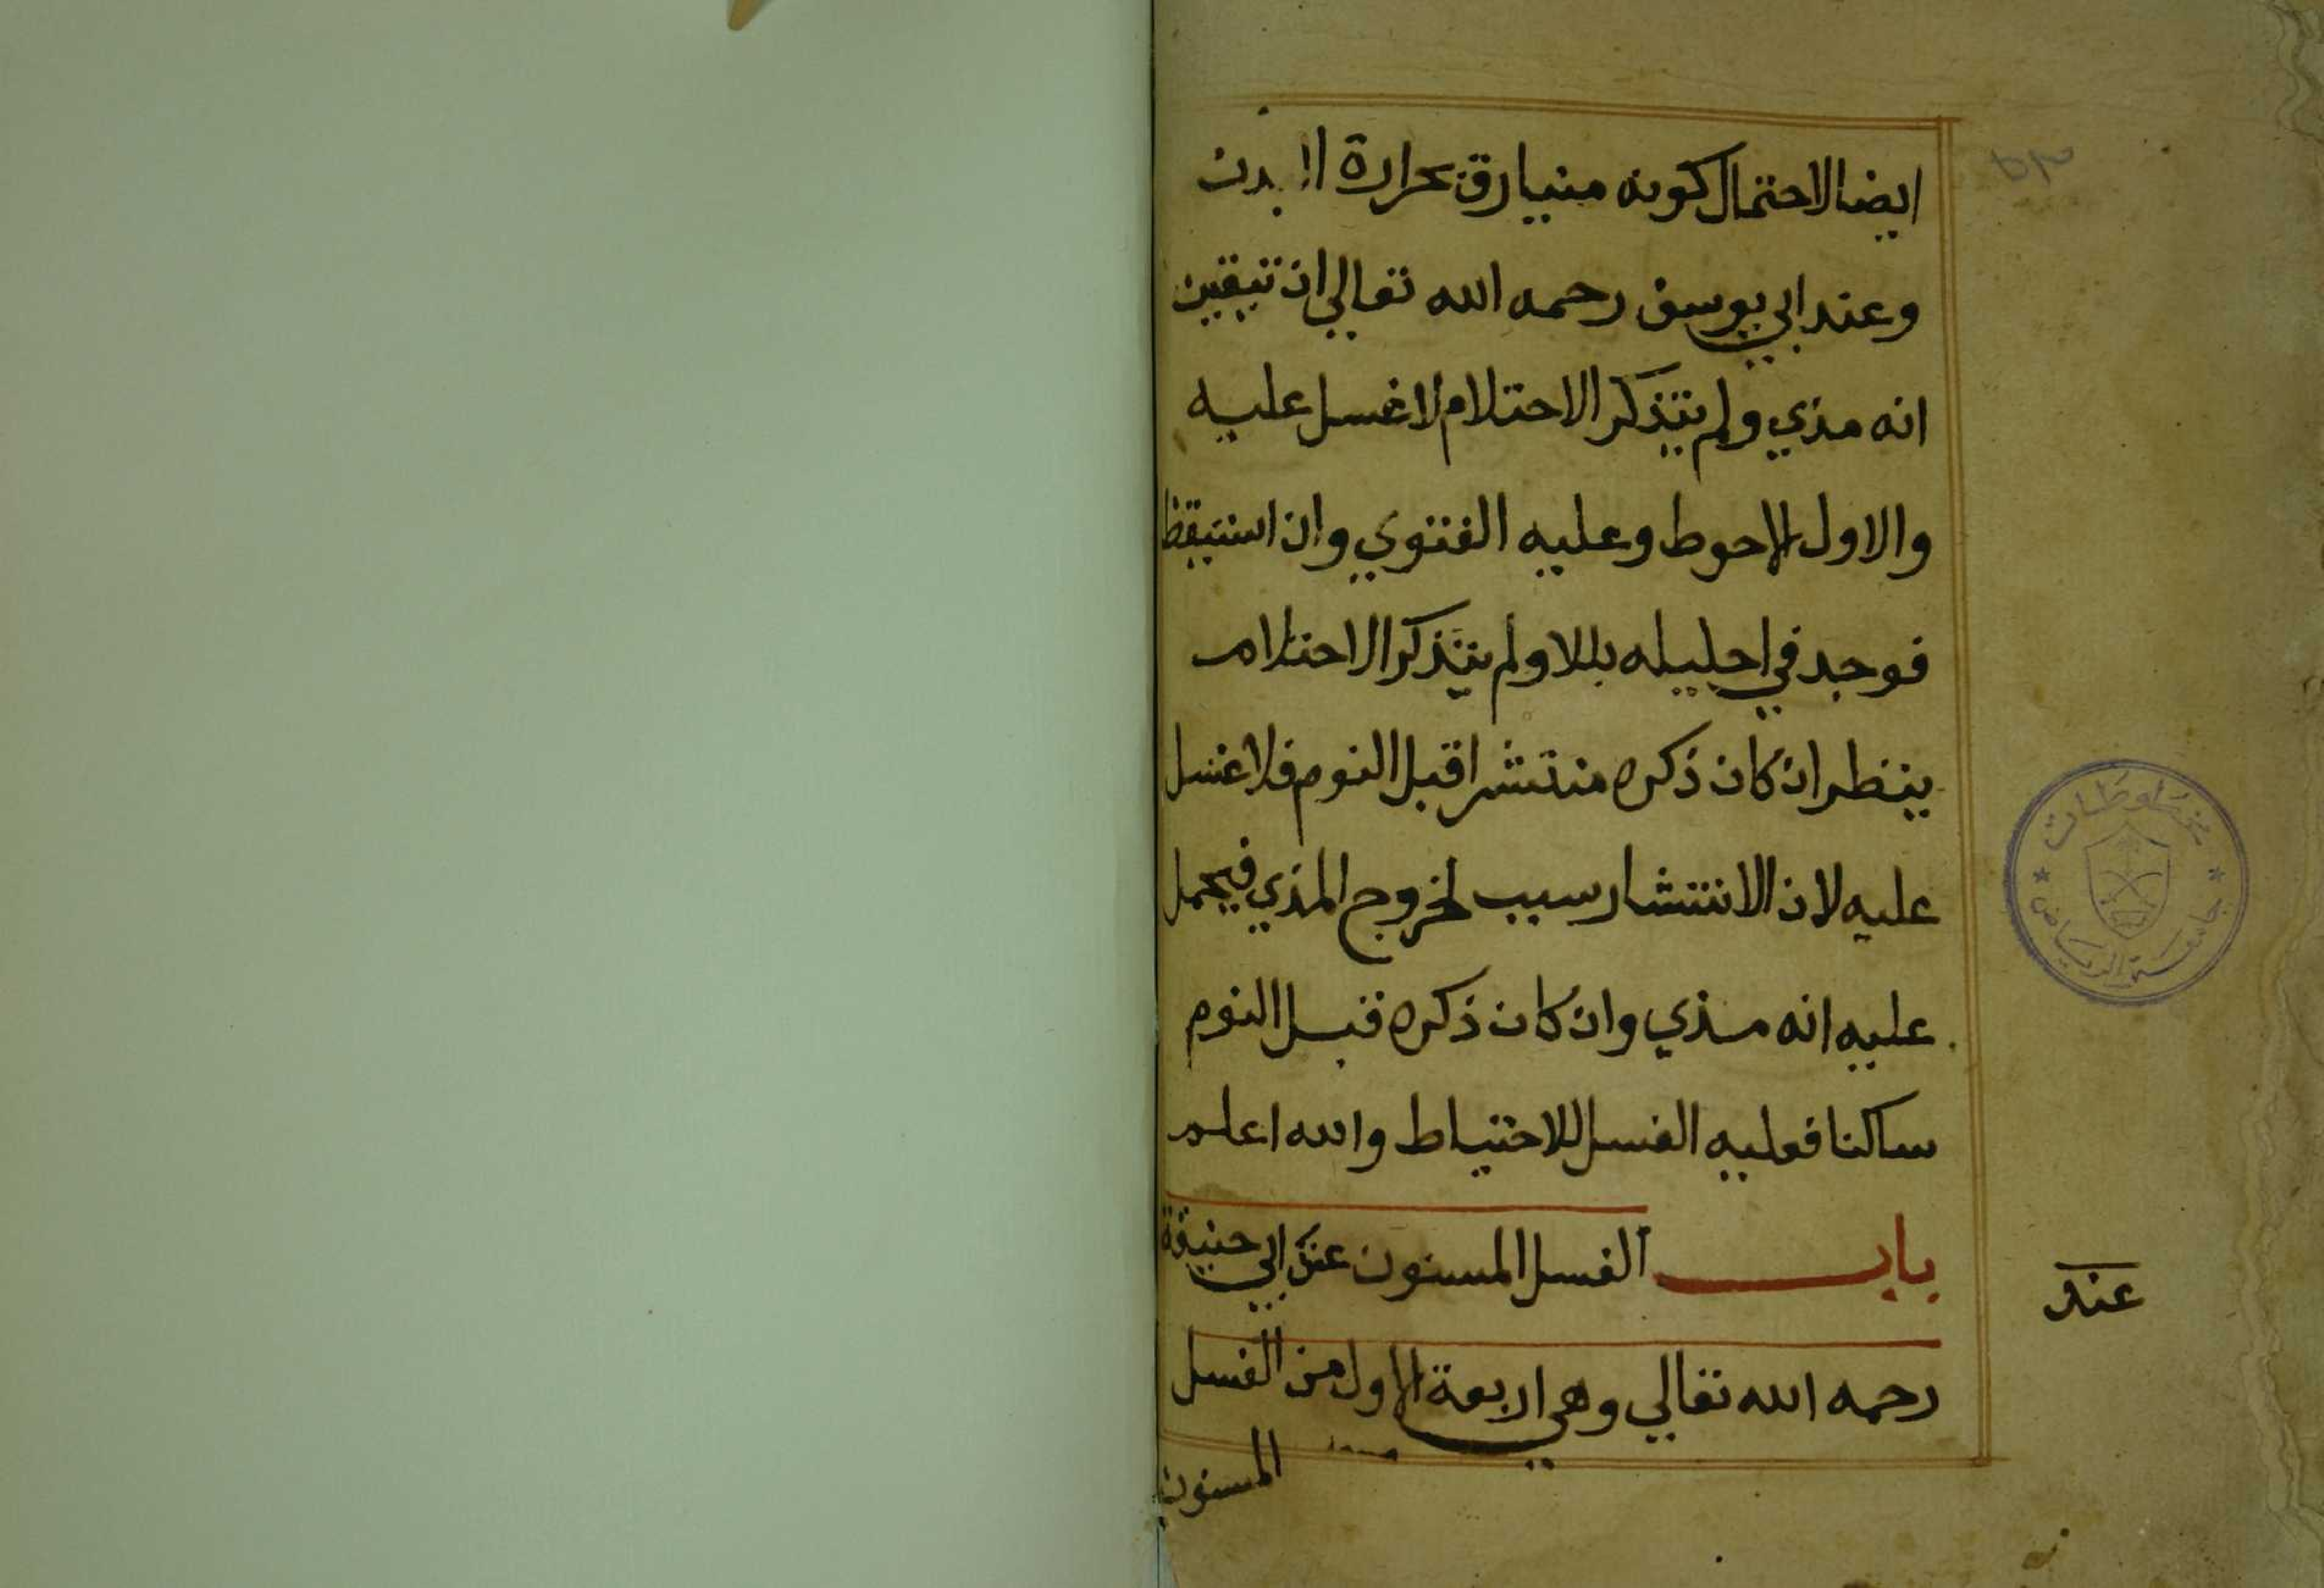 ايضا لاحتمال كونه منيا رق بحرارة البدن
وعند ابي يوسف رحمه الله تعالي ان تيقين
انه مذي ولم يتذكر الاحتلام لا غسل عليه
والاول الاحوط وعليه الفتوي وان استيقظ
فوجد في احليله بللا ولم يتذكر الاحتلام
ينظر ان كان ذكره منتشرا قبل النوم فلا غسل
عليه لان الانتشار سبب لخروج المذي فيحمل
عليه انه مذي وان كان ذكره قبل النوم
ساكنا فعليه الغسل للاحتياط والله اعلم
باب الغسل المسنون عند ابي حنيفة
عند
رحمه الله تعالي وهي اربعة الاول من الغسل
المسنون
مخطوطات
جامعة الرياض